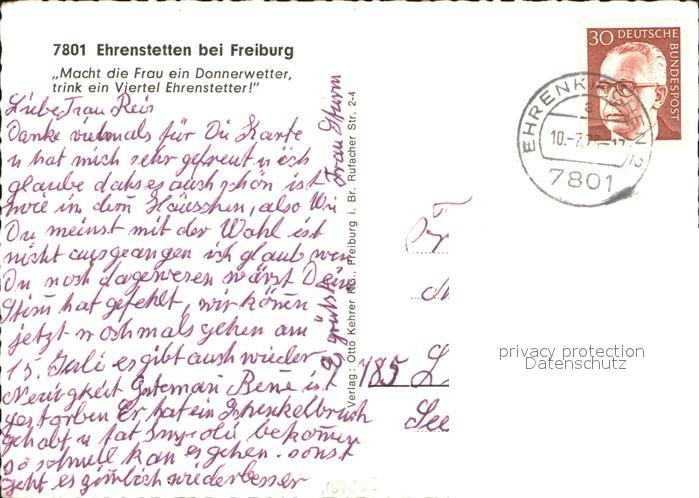 7801 Ehrenstetten bei Freiburg
„Macht die Frau ein Donnerwetter,
trink ein Viertel Ehrenstetter!"
Liebe Frau Reis
Danke vielmals für Die Karte
u hat mich sehr gefreut u ich
glaube dahs es auch schön ist
wie in dem Häuschen, also Wie
Du meinst mit der Wahl ist
nicht ausgegangen ich glaub wen
Du noch dagewesen wärst Deine
Stim hat gefehlt, wir könen
jetzt nochmals gehen am
15. Juli es gibt auch wieder
Neuigkeit Bene ist
gestorben Er hat ein Schenkelbruch
gehabt u hat bekomen
so schnell kan es gehen. sonst
geht es zimlich wieder besser
Es grüßt Frau Sturm
Verlag: Otto Kehrer KG., Freiburg i. Br. Rufacher Str. 2-4
30 DEUTSCHE BUNDESPOST
EHRENKIRCHEN
a
10.-7.7
7801
Fr
785 L
See
privacy protection
Datenschutz